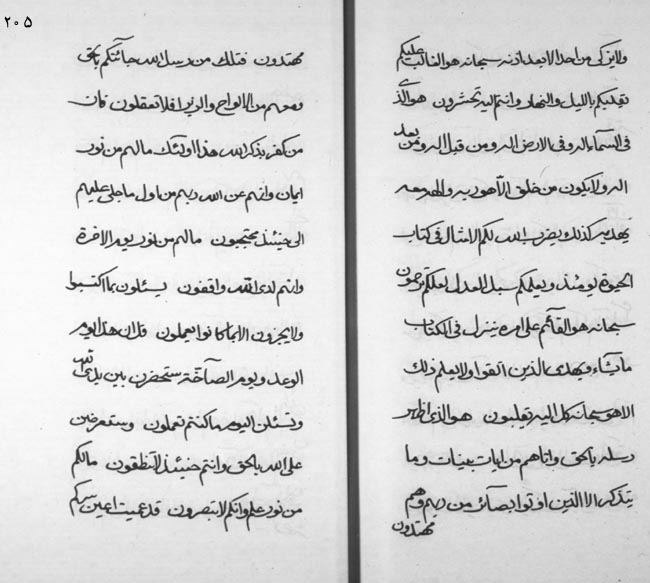 ولا يزكى من احد الا بعد اذنه سبحانه هو الغالب عليكم
تقلبكم بالليل والنهار وانتم اليه تحشرون هو الذى
فى السماء اله وفى الارض اله ومن قبل اله ومن بعد
اله ولا يكون من خلق الا هو ربه والهه
كذلك يضرب الله لكم الامثال فى كتاب
الحيوة يومئذ ويعلمكم سبل العدل لعلكم ترحمون
سبحانه هو القائم على امره ينزل فى الكتاب
مايشاء ويهدى الذين اتقوا ولا يعلم ذلك
الا هو سبحانه كل اليه تقلبون هو الذى اظهر
رسله بالحق واتاهم من ايات بينات وما
يتذكر الا الذين اوتوا بصائر من ربهم وهم
مهتدون
٢٠٥
مهتدون فتلك من رسل الله جائتكم بالحق
ومعهم من الالواح والزبر افلا تعقلون فان
من كفر بذكر الله هذا اولئك مالهم من نور
ايمان وانهم عن الله ربهم من اول ما جلى عليهم
الى حينئذ محتجبون مالهم من نور يوم الاخرة
وانتم لدى الله واقفون يسئلون بما اكتسبوا
ولا يجزون الا بما كانوا يعملون قل ان هذا يوم
الوعد ويوم الصاخة ستحضرن بين يدى الله
وتسئلن اليوم ماكنتم تعملون وستعرضين
على الله بالحق وانتم حينئذ لا تنطقون مالكم
من نور علم وانكم لا تبصرون قد عميت اعين سركم